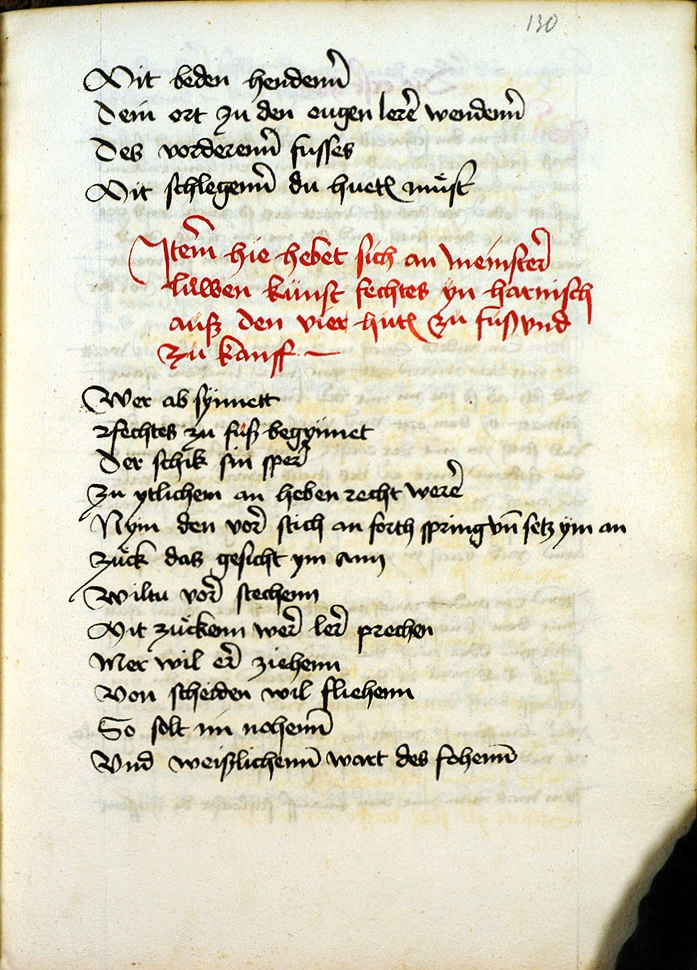 130
Mit beden hendenn̄
Dein ort zu den eugen lere wendenn̄
Des vorderenn̄ fusses
Mit schlegenn̄ du huetē müst
Item hie hebet sich an meinster
luwen künst fechtes yn harnisch
auß den vier hutē zu fuß vnd
zu kanff
Wer ab synnett
Ffechtes zu fuß begynnet
Der schik sin sper
Zu ytlichem an heben recht were
Nym den vor stich an forth spring vn̄ setz ym an
Zück das gesicht ym ann
Wiltu vor stechenn
Mit zückenn wer ler prechen
Mer wil er ziehenn
Von scheiden wil fliehenn
So solt im nohenn̄
Vnd weißlichenn̄ wart des fohenn̄